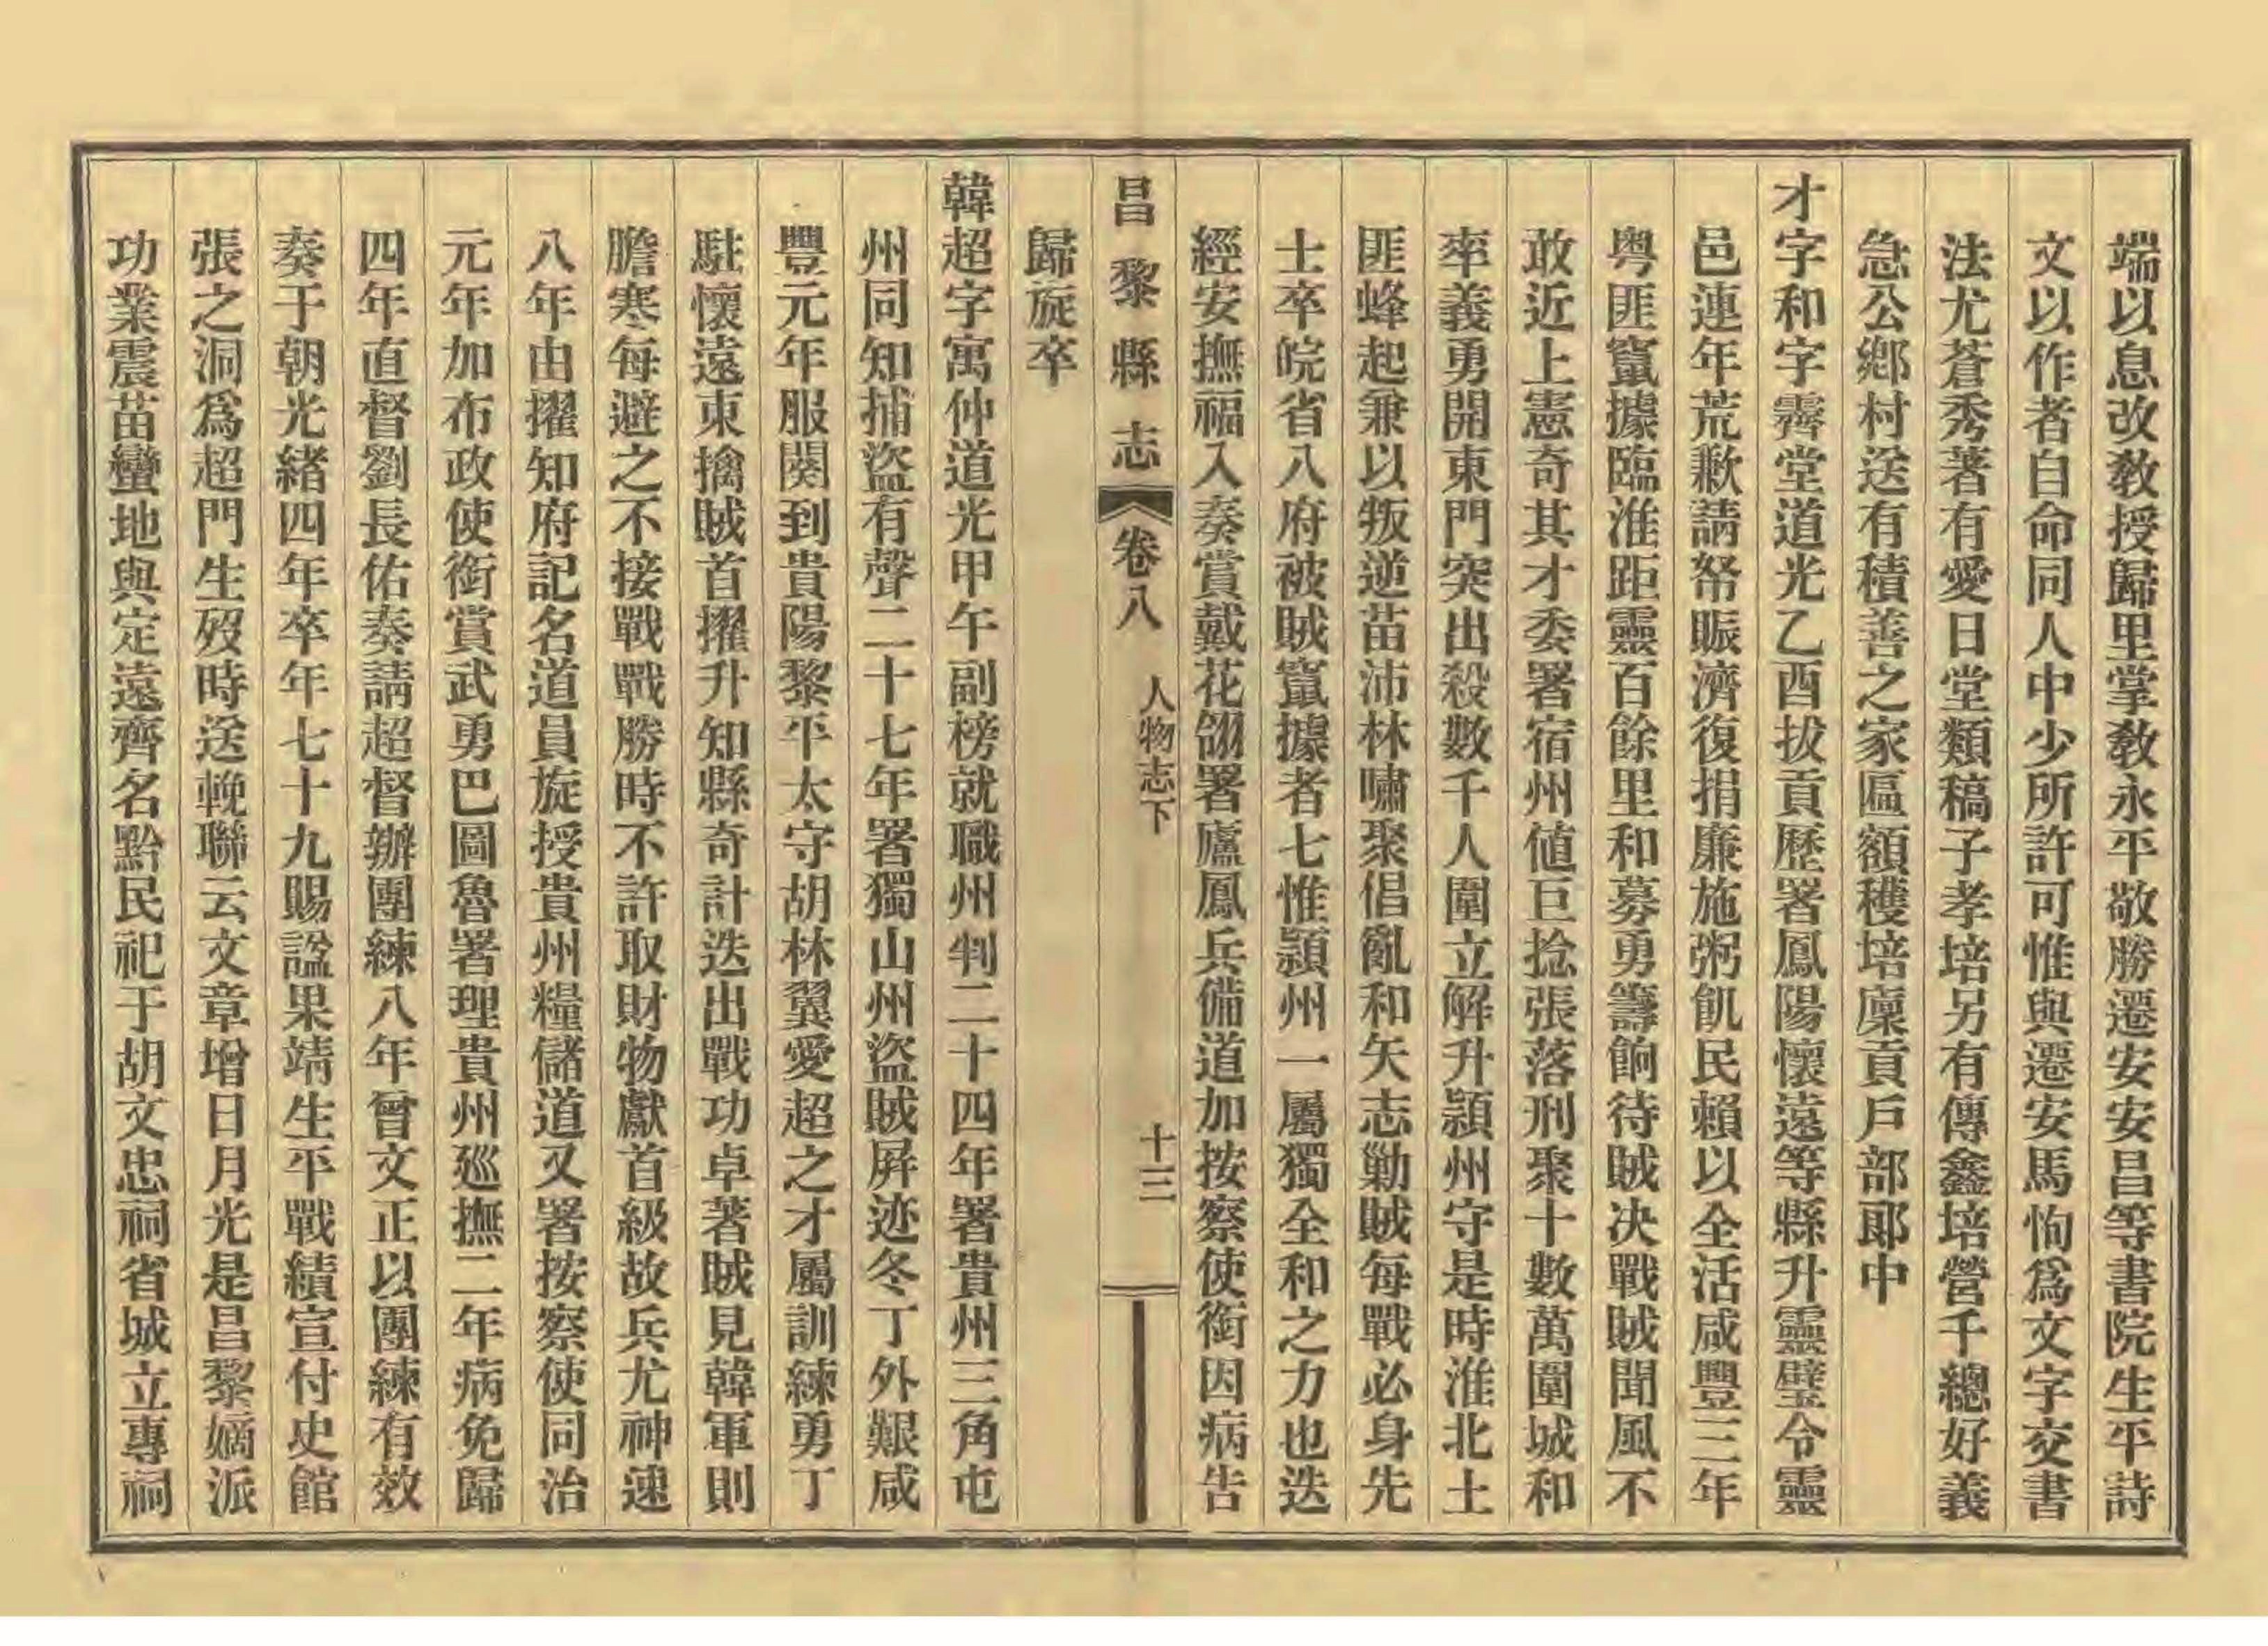 端以息改教授歸里掌教永平敬勝遷安安昌等書院生平詩
文以作者自命同人中少所許可惟與遷安馬恂爲文字交書
法尤蒼秀著有愛日堂類稿子孝培另有傳鑫培營千總好義
急公鄉村送有積善之家區額穫培廩貢戶部郎中
才字和字霽堂道光乙酉拔貢歷署鳳陽懷遠等縣升靈璧令靈
邑連年荒歉請帑賑濟復捐廉施粥飢民賴以全活咸豐三年
粵匪竄據臨淮距靈百餘里和募勇籌餉待賊决戰賊聞風不
敢近上憲奇其才委署宿州値巨捻張落刑聚十數萬圍城和
率義勇開東門突出殺數千人圍立解升潁州守是時淮北土
匪蜂起兼以叛逆苗沛林嘯聚倡亂和矢志勦賊每戰必身先
士卒皖省八府被賊竄據者七惟潁州一屬獨全和之力也迭
經安撫福入奏賞戴花翎署廬鳳兵備道加按察使銜因病告
昌黎縣志 卷八 人物志下 十三
歸旋卒
韓超字寓仲道光甲午副榜就職州判二十四年署貴州三角屯
州同知捕盜有聲二十七年署獨山州盜賊屏迹冬丁外艱咸
豐元年服闋到貴陽黎平太守胡林翼愛超之才屬訓練勇丁
駐懷遠東擒賊首擢升知縣奇計迭出戰功卓著賊見韓軍則
膽寒每避之不接戰戰勝時不許取財物獻首級故兵尤神速
八年由擢知府記名道員旋授貴州糧儲道又署按察使同治
元年加布政使銜賞武勇巴圖魯署理貴州廵撫二年病免歸
四年直督劉長佑奏請超督辦團練八年曾文正以團練有效
奏于朝光緒四年卒年七十九賜諡果靖生平戰績宣付史館
張之洞爲超門生歿時送輓聯云文章增日月光是昌黎嫡派
功業震苗蠻地與定遠齊名黔民祀于胡文忠祠省城立專祠